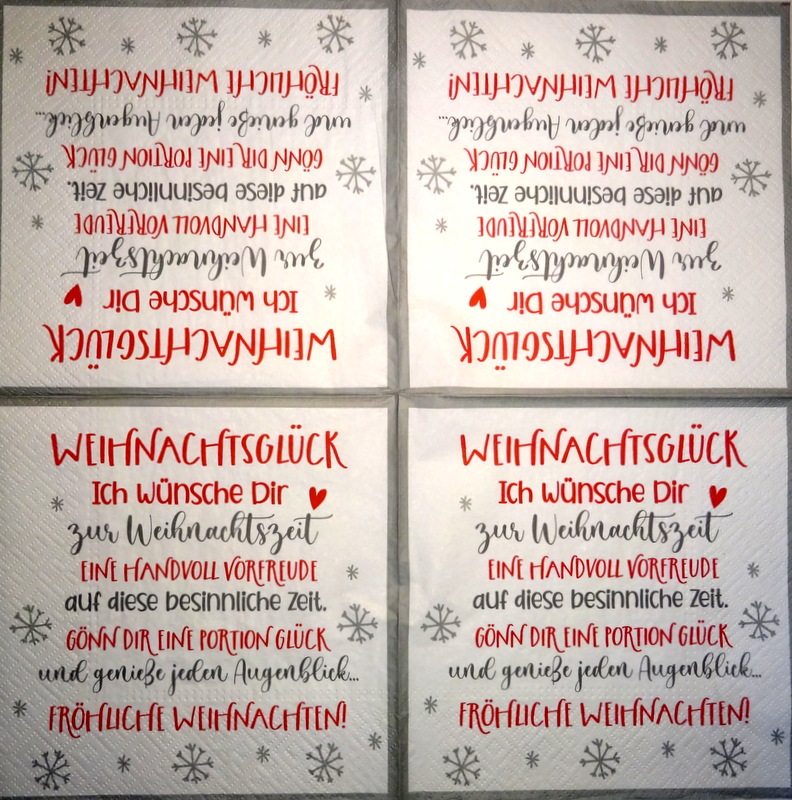 WEIHNACHTSGLÜCK
Ich wünsche Dir
zur Weihnachtszeit
EINE HANDVOLL VORFREUDE
auf diese besinnliche Zeit.
GÖNN DIR EINE PORTION GLÜCK
und genieße jeden Augenblick...
FRÖHLICHE WEIHNACHTEN!
WEIHNACHTSGLÜCK
Ich wünsche Dir
zur Weihnachtszeit
EINE HANDVOLL VORFREUDE
auf diese besinnliche Zeit.
GÖNN DIR EINE PORTION GLÜCK
und genieße jeden Augenblick...
FRÖHLICHE WEIHNACHTEN!
WEIHNACHTSGLÜCK
Ich wünsche Dir
zur Weihnachtszeit
EINE HANDVOLL VORFREUDE
auf diese besinnliche Zeit.
GÖNN DIR EINE PORTION GLÜCK
und genieße jeden Augenblick...
FRÖHLICHE WEIHNACHTEN!
WEIHNACHTSGLÜCK
Ich wünsche Dir
zur Weihnachtszeit
EINE HANDVOLL VORFREUDE
auf diese besinnliche Zeit.
GÖNN DIR EINE PORTION GLÜCK
und genieße jeden Augenblick...
FRÖHLICHE WEIHNACHTEN!